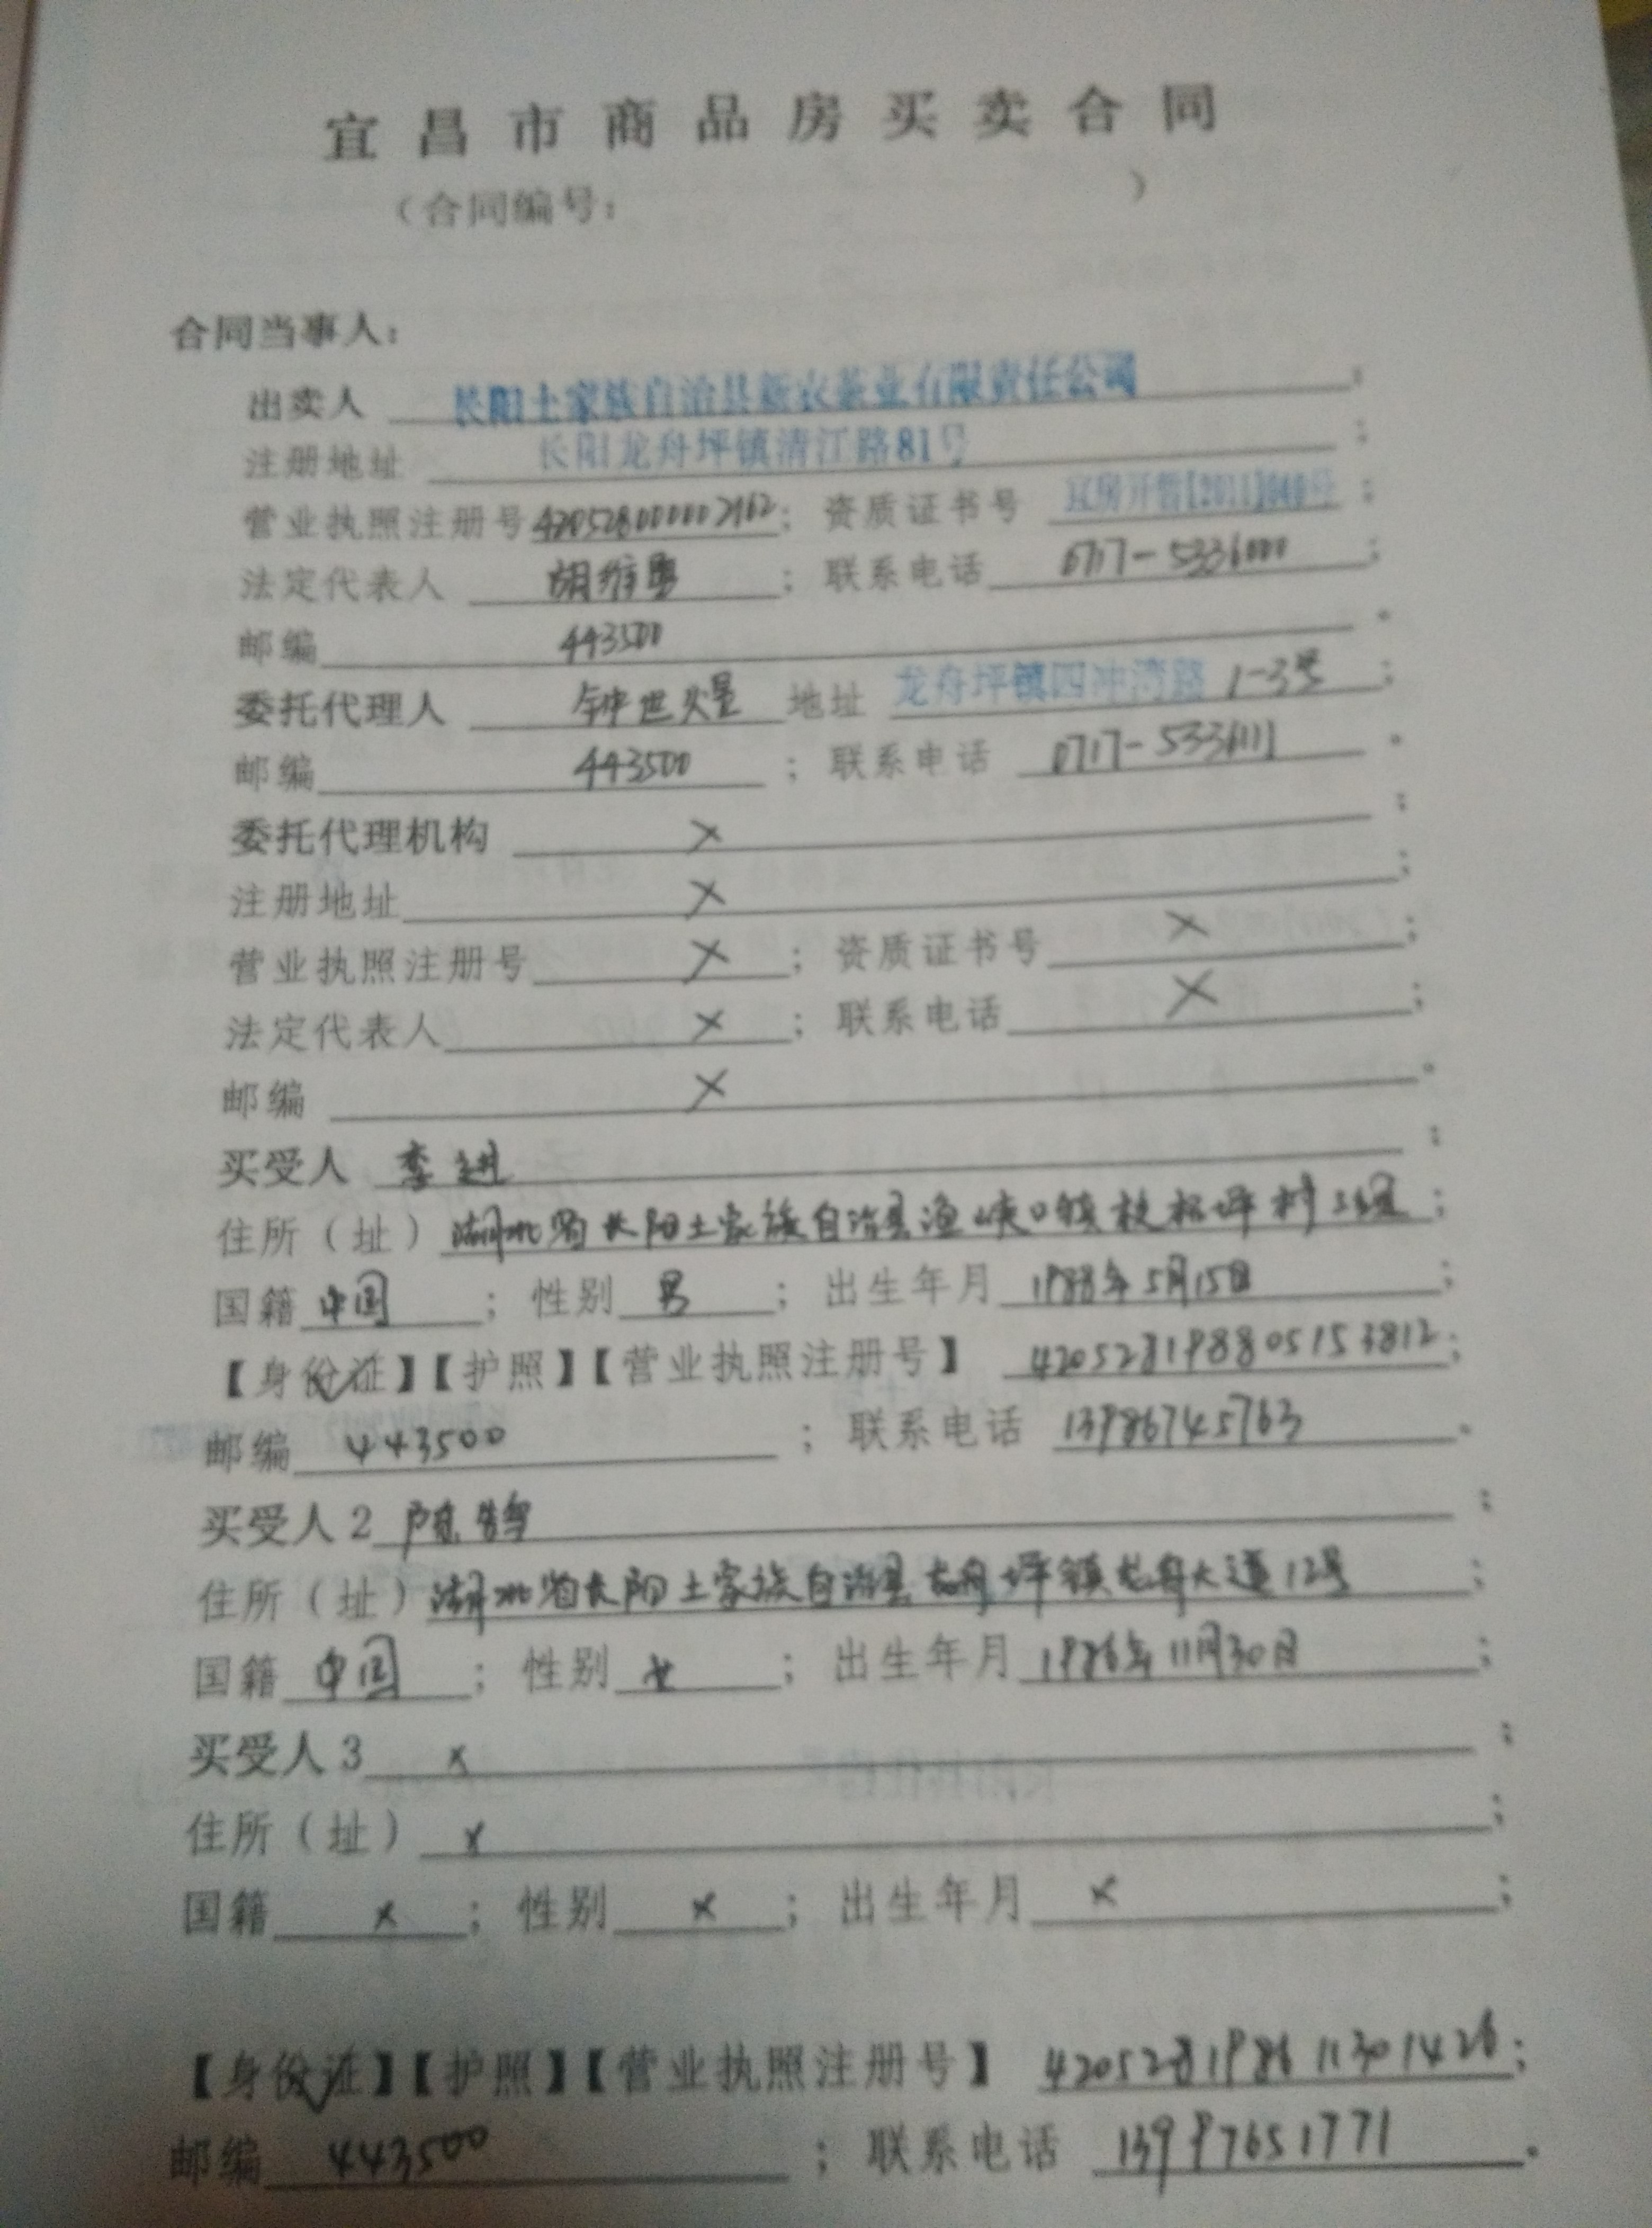 宜昌市商品房买卖合同
（合同编号： ）
合同当事人：
出卖人 长阳土家族自治县新农茶业有限责任公司；
注册地址 长阳龙舟坪镇清江路81号；
营业执照注册号420528000002162；资质证书号 宜房开暂[2011]040号；
法定代表人 胡维；联系电话 0717-5336000；
邮编 443500。
委托代理人 钟世煜 地址 龙舟坪镇四冲湾路1-3号；
邮编 443500；联系电话 0717-5336111。
委托代理机构 ×；
注册地址 ×；
营业执照注册号 ×；资质证书号 ×；
法定代表人 ×；联系电话 ×；
邮编 ×。
买受人 李进；
住所（址）湖北省长阳土家族自治县渔峡口镇枝柘坪村3组；
国籍 中国；性别 男；出生年月 1988年5月15日；
【身份证】【护照】【营业执照注册号】 420528198805153812；
邮编 443500；联系电话 13986745763。
买受人2；
住所（址）湖北省长阳土家族自治县龙舟坪镇龙舟大道12号；
国籍 中国；性别 女；出生年月 1986年11月30日；
买受人3 ×；
住所（址） ×；
国籍 ×；性别 ×；出生年月 ×；
【身份证】【护照】【营业执照注册号】 420528198611301426；
邮编 443500；联系电话 13997651771。